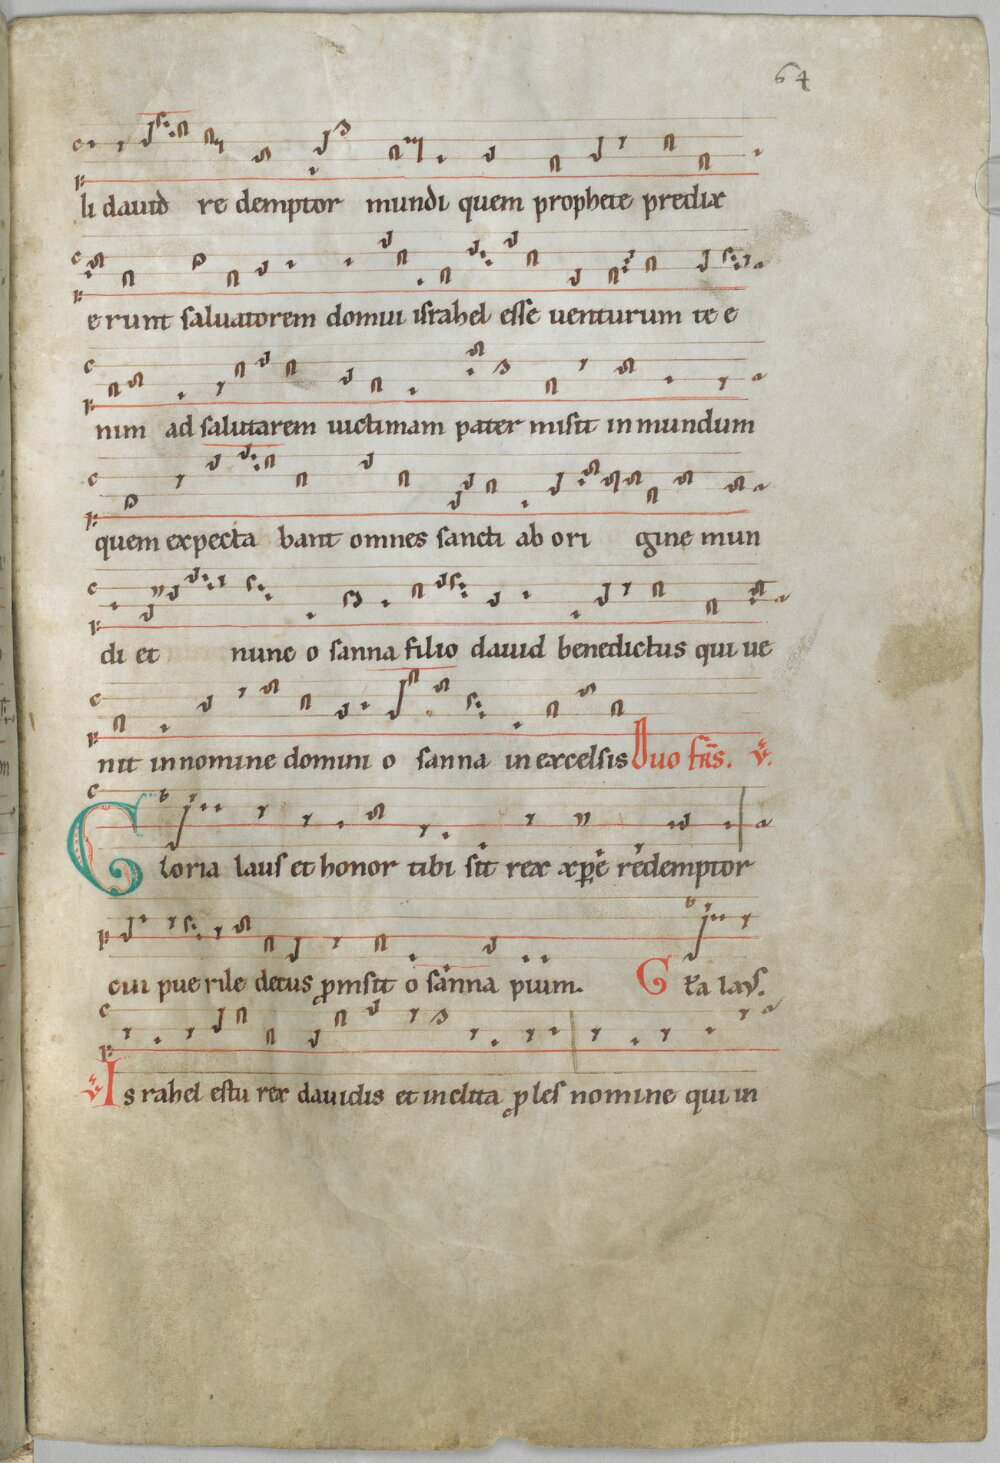 64
li dauid re demptor mundi quem prophete predix
erunt saluatorem domui israhel esse uenturum te e
nim ad salutarem uictimam pater misit in mundum
quem expecta bant omnes sancti ab ori gine mun
di et nunc o sanna filio dauid benedictus qui ue
nit in nomine domini o sanna in excelsis Duo fr̄s. V.
Gloria laus et honor tibi sit rex xp̄e redemptor
cui puerile decus ꝓmsit o sanna pium. Gl̄a laus.
V. Israhel es tu rex dauidis et inclita ꝓles nomine qui in